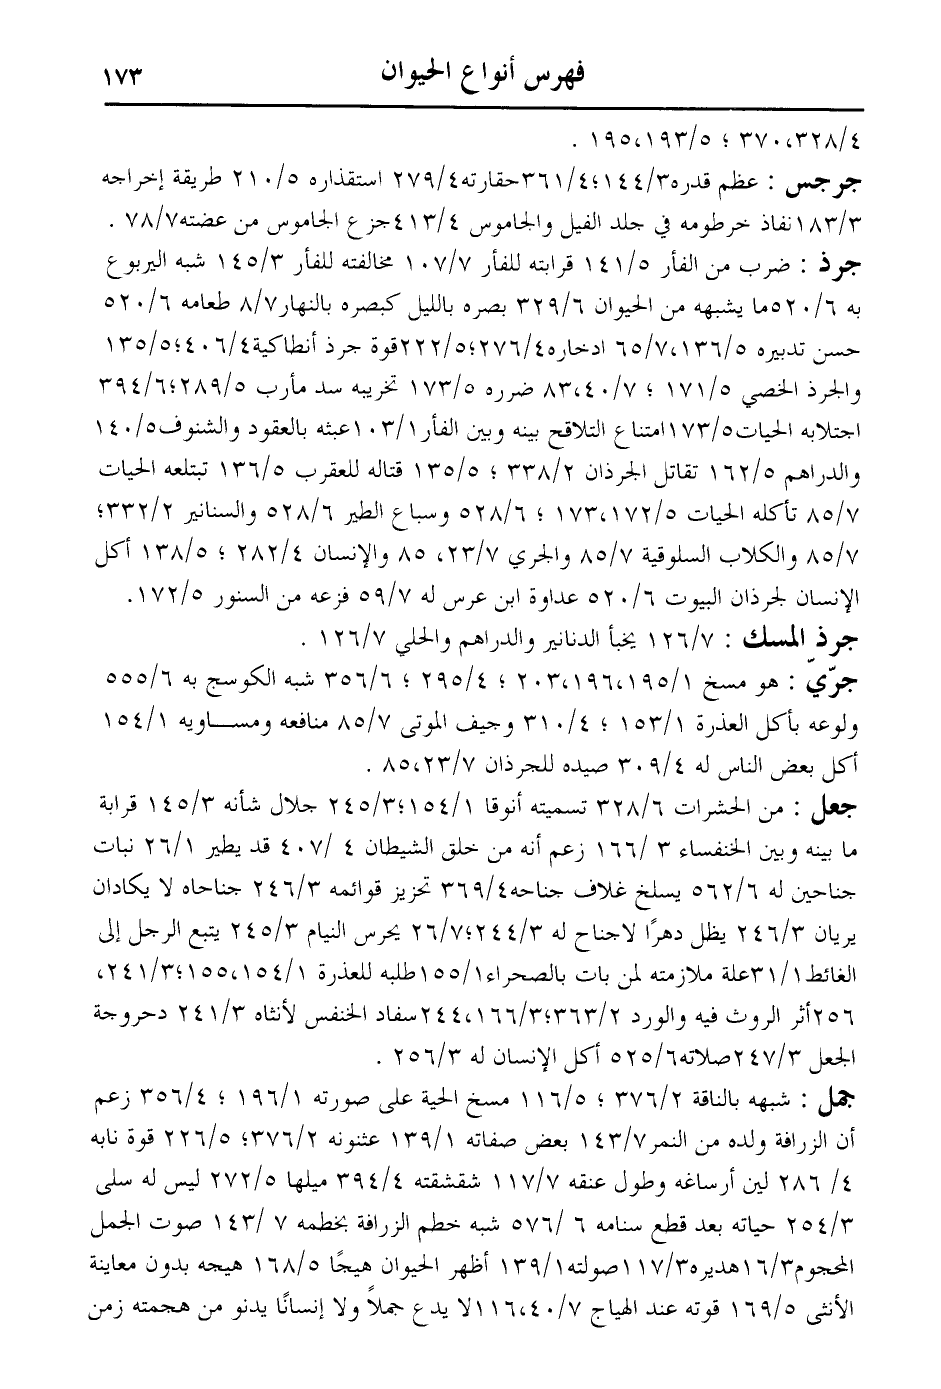 فهرس أنواع الحيوان ١٧٣
٣٢٨/٤،٣٧٠ ؛ ١٩٣/٥،١٩٥ .
جرجس : عظم قدره١٤٤/٣؛٣٦١/٤حقارته٢٧٩/٤ استقذاره ٢١٠/٥ طريقة إخراجه
١٨٣/٣نفاذ خرطومه في جلد الفيل والجاموس ٤١٣/٤جزع الجاموس من عضته٧٨/٧ .
جرذ : ضرب من الفأر ١٤١/٥ قرابته للفأر ١٠٧/٧ مخالفته للفأر ١٤٥/٣ شبه اليربوع
به ٥٢٠/٦ما يشبهه من الحيوان ٣٢٩/٦ بصره بالليل كبصره بالنهار٨/٧ طعامه ٥٢٠/٦
حسن تدبيره ١٣٦/٥،٦٥/٧ ادخاره٢٧٦/٤؛٢٢٢/٥قوة جرذ أنطاكية٤٠٦/٤؛١٣٥/٥
والجرذ الخصي ١٧١/٥ ؛ ٤٠/٧،٨٣ ضرره ١٧٣/٥ تخريبه سد مأرب ٢٨٩/٥؛٣٩٤/٦
اجتلابه الحيات١٧٣/٥امتناع التلاقح بينه وبين الفأر١٠٣/١عبثه بالعقود والشنوف١٤٠/٥
والدراهم ١٦٢/٥ تقاتل الجرذان ٣٣٨/٢ ؛ ١٣٥/٥ قتاله للعقرب ١٣٦/٥ تبتلعه الحيات
٨٥/٧ تأكله الحيات ١٧٢/٥،١٧٣ ؛ ٥٢٨/٦ وسباع الطير ٥٢٨/٦ والسنانير ٣٣٢/٢؛
٨٥/٧ والكلاب السلوقية ٨٥/٧ والجري ٢٣/٧، ٨٥ والإنسان ٢٨٢/٤ ؛ ١٣٨/٥ أكل
الإنسان لجرذان البيوت ٥٢٠/٦ عداوة ابن عرس له ٥٩/٧ فزعه من السنور ١٧٢/٥.
جرذ المسك : ١٢٦/٧ يخبأ الدنانير والدراهم والحلي ١٢٦/٧ .
جرّيّ : هو مسخ ١٩٥/١،١٩٦،٢٠٣ ؛ ٢٩٥/٤ ؛ ٣٥٦/٦ شبه الكوسج به ٥٥٥/٦
ولوعه بأكل العذرة ١٥٣/١ ؛ ٣١٠/٤ وجيف الموتى ٨٥/٧ منافعه ومســاويه ١٥٤/١
أكل بعض الناس له ٣٠٩/٤ صيده للجرذان ٢٣/٧،٨٥ .
جعل : من الحشرات ٣٢٨/٦ تسميته أنوقا ١٥٤/١؛٢٤٥/٣ جلال شأنه ١٤٥/٣ قرابة
ما بينه وبين الخنفساء ٣ /١٦٦ زعم أنه من خلق الشيطان ٤ /٤٠٧ قد يطير ٢٦/١ نبات
جناحين له ٥٦٢/٦ يسلخ غلاف جناحه٣٦٩/٤ تحزيز قوائمه ٢٤٦/٣ جناحاه لا يكادان
يريان ٢٤٦/٣ يظل دهرًا لاجناح له ٢٤٤/٣؛٢٦/٧ يحرس النيام ٢٤٥/٣ يتبع الرجل إلى
الغائط٣١/١علة ملازمته لمن بات بالصحراء١٥٥/١طلبه للعذرة ١٥٤/١،١٥٥؛٢٤١/٣،
٢٥٦أثر الروث فيه والورد ٣٦٣/٢؛١٦٦/٣،٢٤٤سفاد الخنفس لأنثاه ٢٤١/٣ دحروجة
الجعل ٢٤٧/٣صلاته٥٢٥/٦ أكل الإنسان له ٢٥٦/٣ .
جمل : شبهه بالناقة ٣٧٦/٢ ؛ ١١٦/٥ مسخ الحية على صورته ١٩٦/١ ؛ ٣٥٦/٤ زعم
أن الزرافة ولده من النمر١٤٣/٧ بعض صفاته ١٣٩/١ عثنونه ٣٧٦/٢؛ ٢٢٦/٥ قوة نابه
٤/ ٢٨٦ لين أرساغه وطول عنقه ١١٧/٧ شقشقته ٣٩٤/٤ ميلها ٢٧٢/٥ ليس له سلى
٢٥٤/٣ حياته بعد قطع سنامه ٦ /٥٧٦ شبه خطم الزرافة بخطمه ٧ /١٤٣ صوت الجمل
المحجوم١٦/٣هديره١١٧/٣صولته١٣٩/١ أظهر الحيوان هيجًا ١٦٨/٥ هيجه بدون معاينة
الأنثى ١٦٩/٥ قوته عند الهياج ٤٠/٧،١١٦لا يدع جملاً ولا إنسانًا يدنو من هجمته زمن